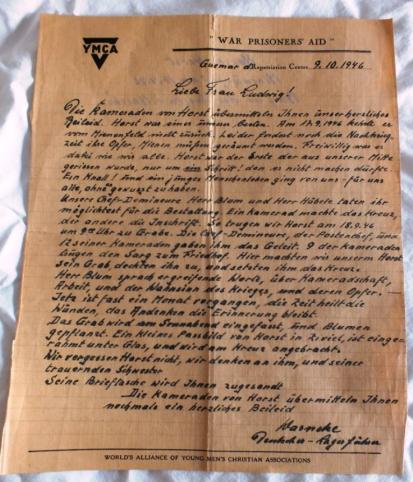 YMCA
" WAR PRISONERS' AID "
Guemar d Repatriation Center 9.10.1946
Liebe Frau Ludwig!
Die Kameraden von Horst übermitteln Ihnen unser herzliches
Beileid. Horst war einer unserer besten. Am 17.9.1946 kehrte er
vom Minenfeld nicht zurück. Leider fordert noch die Nachkriegs
zeit ihre Opfer, Minen müssen geräumt werden. Freiwillig war es
dazu wie wir alle. Horst war der Erste der aus unserer Mitte
gerissen wurde, nur um ein Schritt! den es nicht machen dürfte.
Ein Knall! Und ein junges Menschenleben ging von uns für uns
alle, ohne gewusst zu haben.
Unsere Chef-Demineure Herr Blum und Herr Häbele taten ihr
möglichstes für die Bestattung. Ein Kamerad machte das Kreuz,
der andere die Inschrift. So trugen wir Horst am 18.9.46
um 9 Uhr zu Grabe. Die Chef-Demineure, der Postenchef, und
12 seiner Kameraden gaben ihm das Geleit. 9 der Kameraden
trugen den Sarg zum Friedhof. Hier machten wir unserm Horst
sein Grab, deckten ihn zu, und setzten ihm das Kreuz.
Herr Blum sprach ergreifende Worte, über Kameradschaft,
Arbeit, und der Wahnsinn des Krieges, und deren Opfer.-
Jetz ist fast ein Monat vergangen, die Zeit heilt die
Wunden, das Andenken die Erinnerung bleibt.
Das Grab wird am Sonnabend eingefasst, und Blumen
gepflanzt. Ein kleines Passbild von Horst in Zivil, ist einge-
rahmt unter Glas, und wird am Kreuz angebracht.
Wir vergessen Horst nicht, wir denken an ihm, und seiner
trauernden Schwester
Seine Brieftasche wird Ihnen zugesandt
Die Kameraden von Horst übermitteln Ihnen
nochmals ein herzliches Beileid
Warneke
Deutscher-Lagerführer
WORLD'S ALLIANCE OF YOUNG MEN'S CHRISTIAN ASSOCIATIONS